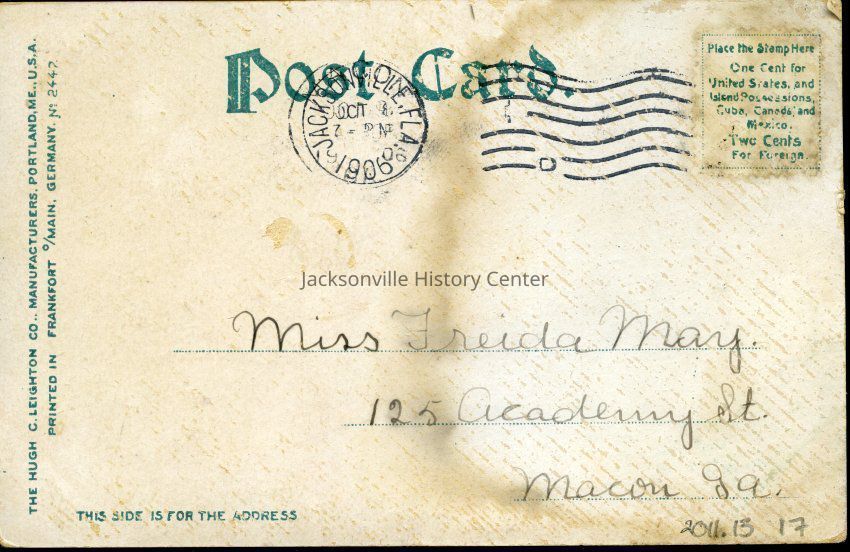 Post Card.
JACKSONVILLE, FLA.
OCT
7 - PM
1906
Place the Stamp Here
One Cent for
United States, and
Island Possessions,
Cuba, Canada and
Mexico.
Two Cents
For Foreign.
THE HUGH C. LEIGHTON CO., MANUFACTURERS, PORTLAND, ME., U.S.A.
PRINTED IN FRANKFORT o/MAIN, GERMANY. No 2447.
Jacksonville History Center
Miss Freida May.
125 Academy St.
Macon Ga.
THIS SIDE IS FOR THE ADDRESS
2011.13 17